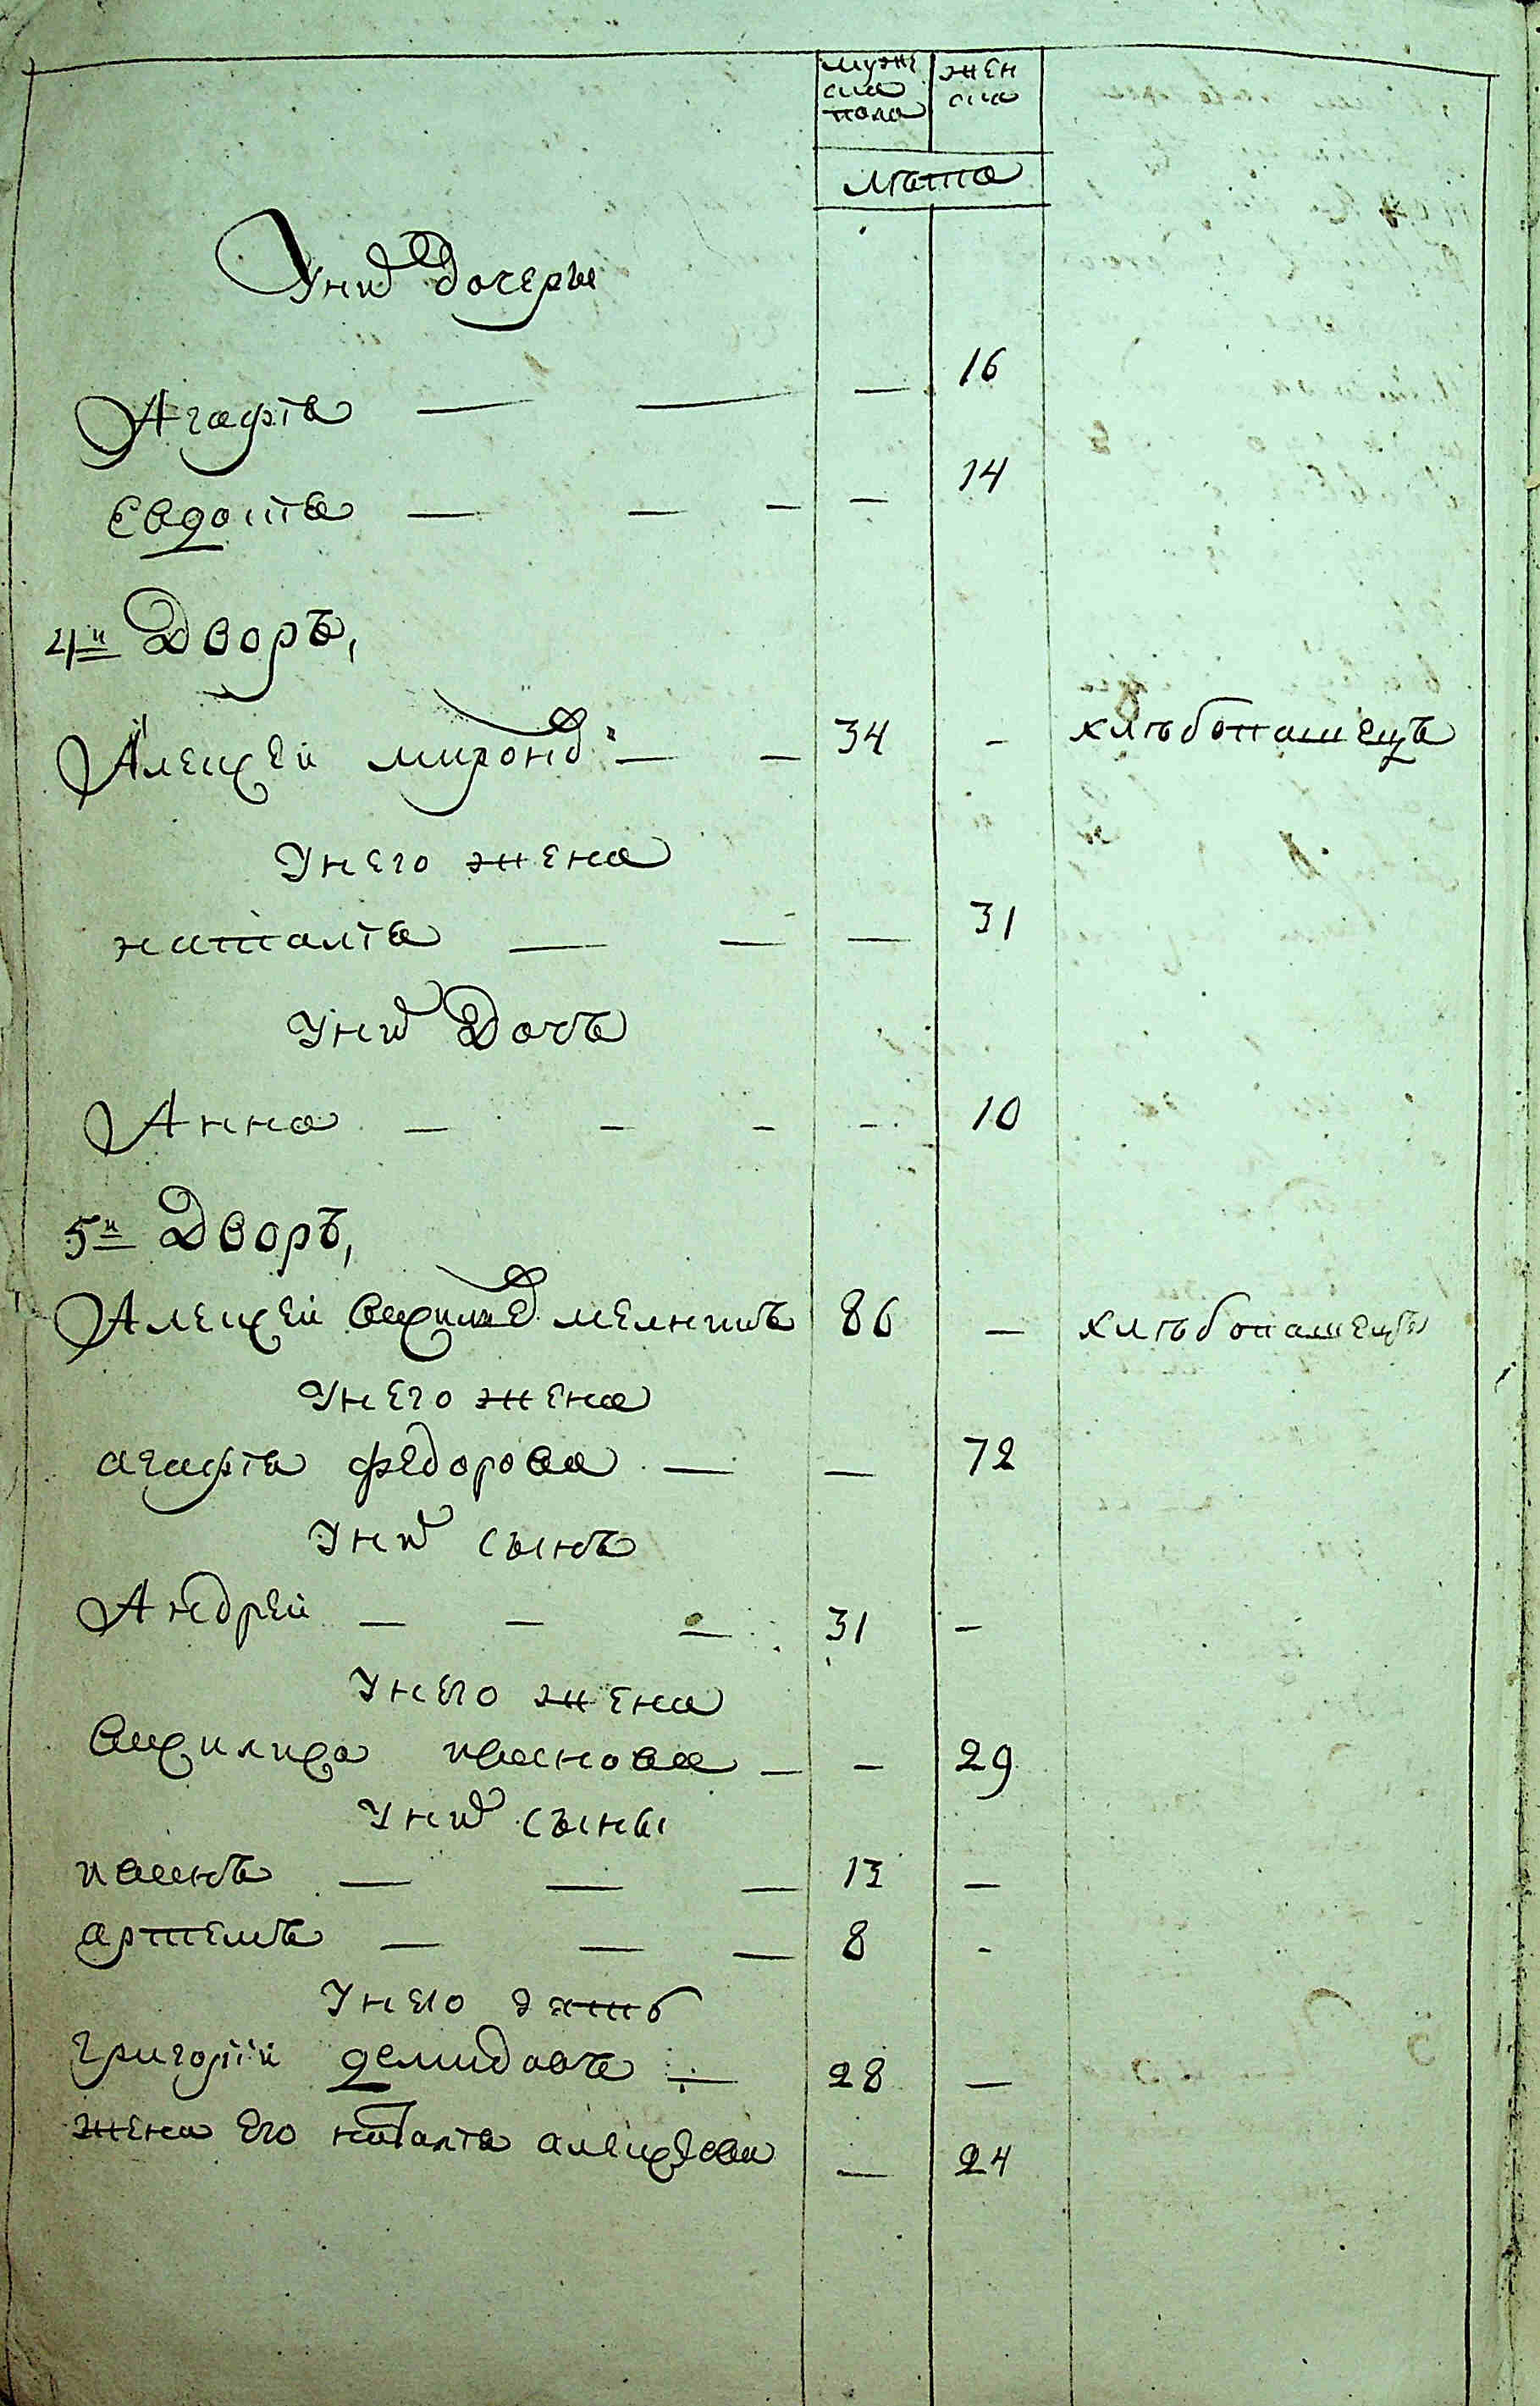 муже
ска
пола
жен
ска
лѣта
У них дочеры
Агафія — — — 16
Евдокія — — — — 14
4й Дворъ,
Алексей миронов — — 34 — хлѣбопашецъ
У него жена
наталія — — — 31
У них Дочь
Анна — — — — 10
5й Дворъ,
Алексей мелникъ 86 — хлѣбопашецъ
У него жена
агафія федорова — — 72
У них сынъ
Андрей — — — 31 —
У него жена
Василиса — — 29
У них сыны
— — — 13 —
артемъ — — — 8 -
У него зять
григорій демидовъ — 28 —
жена его наталія алексѣева — 24